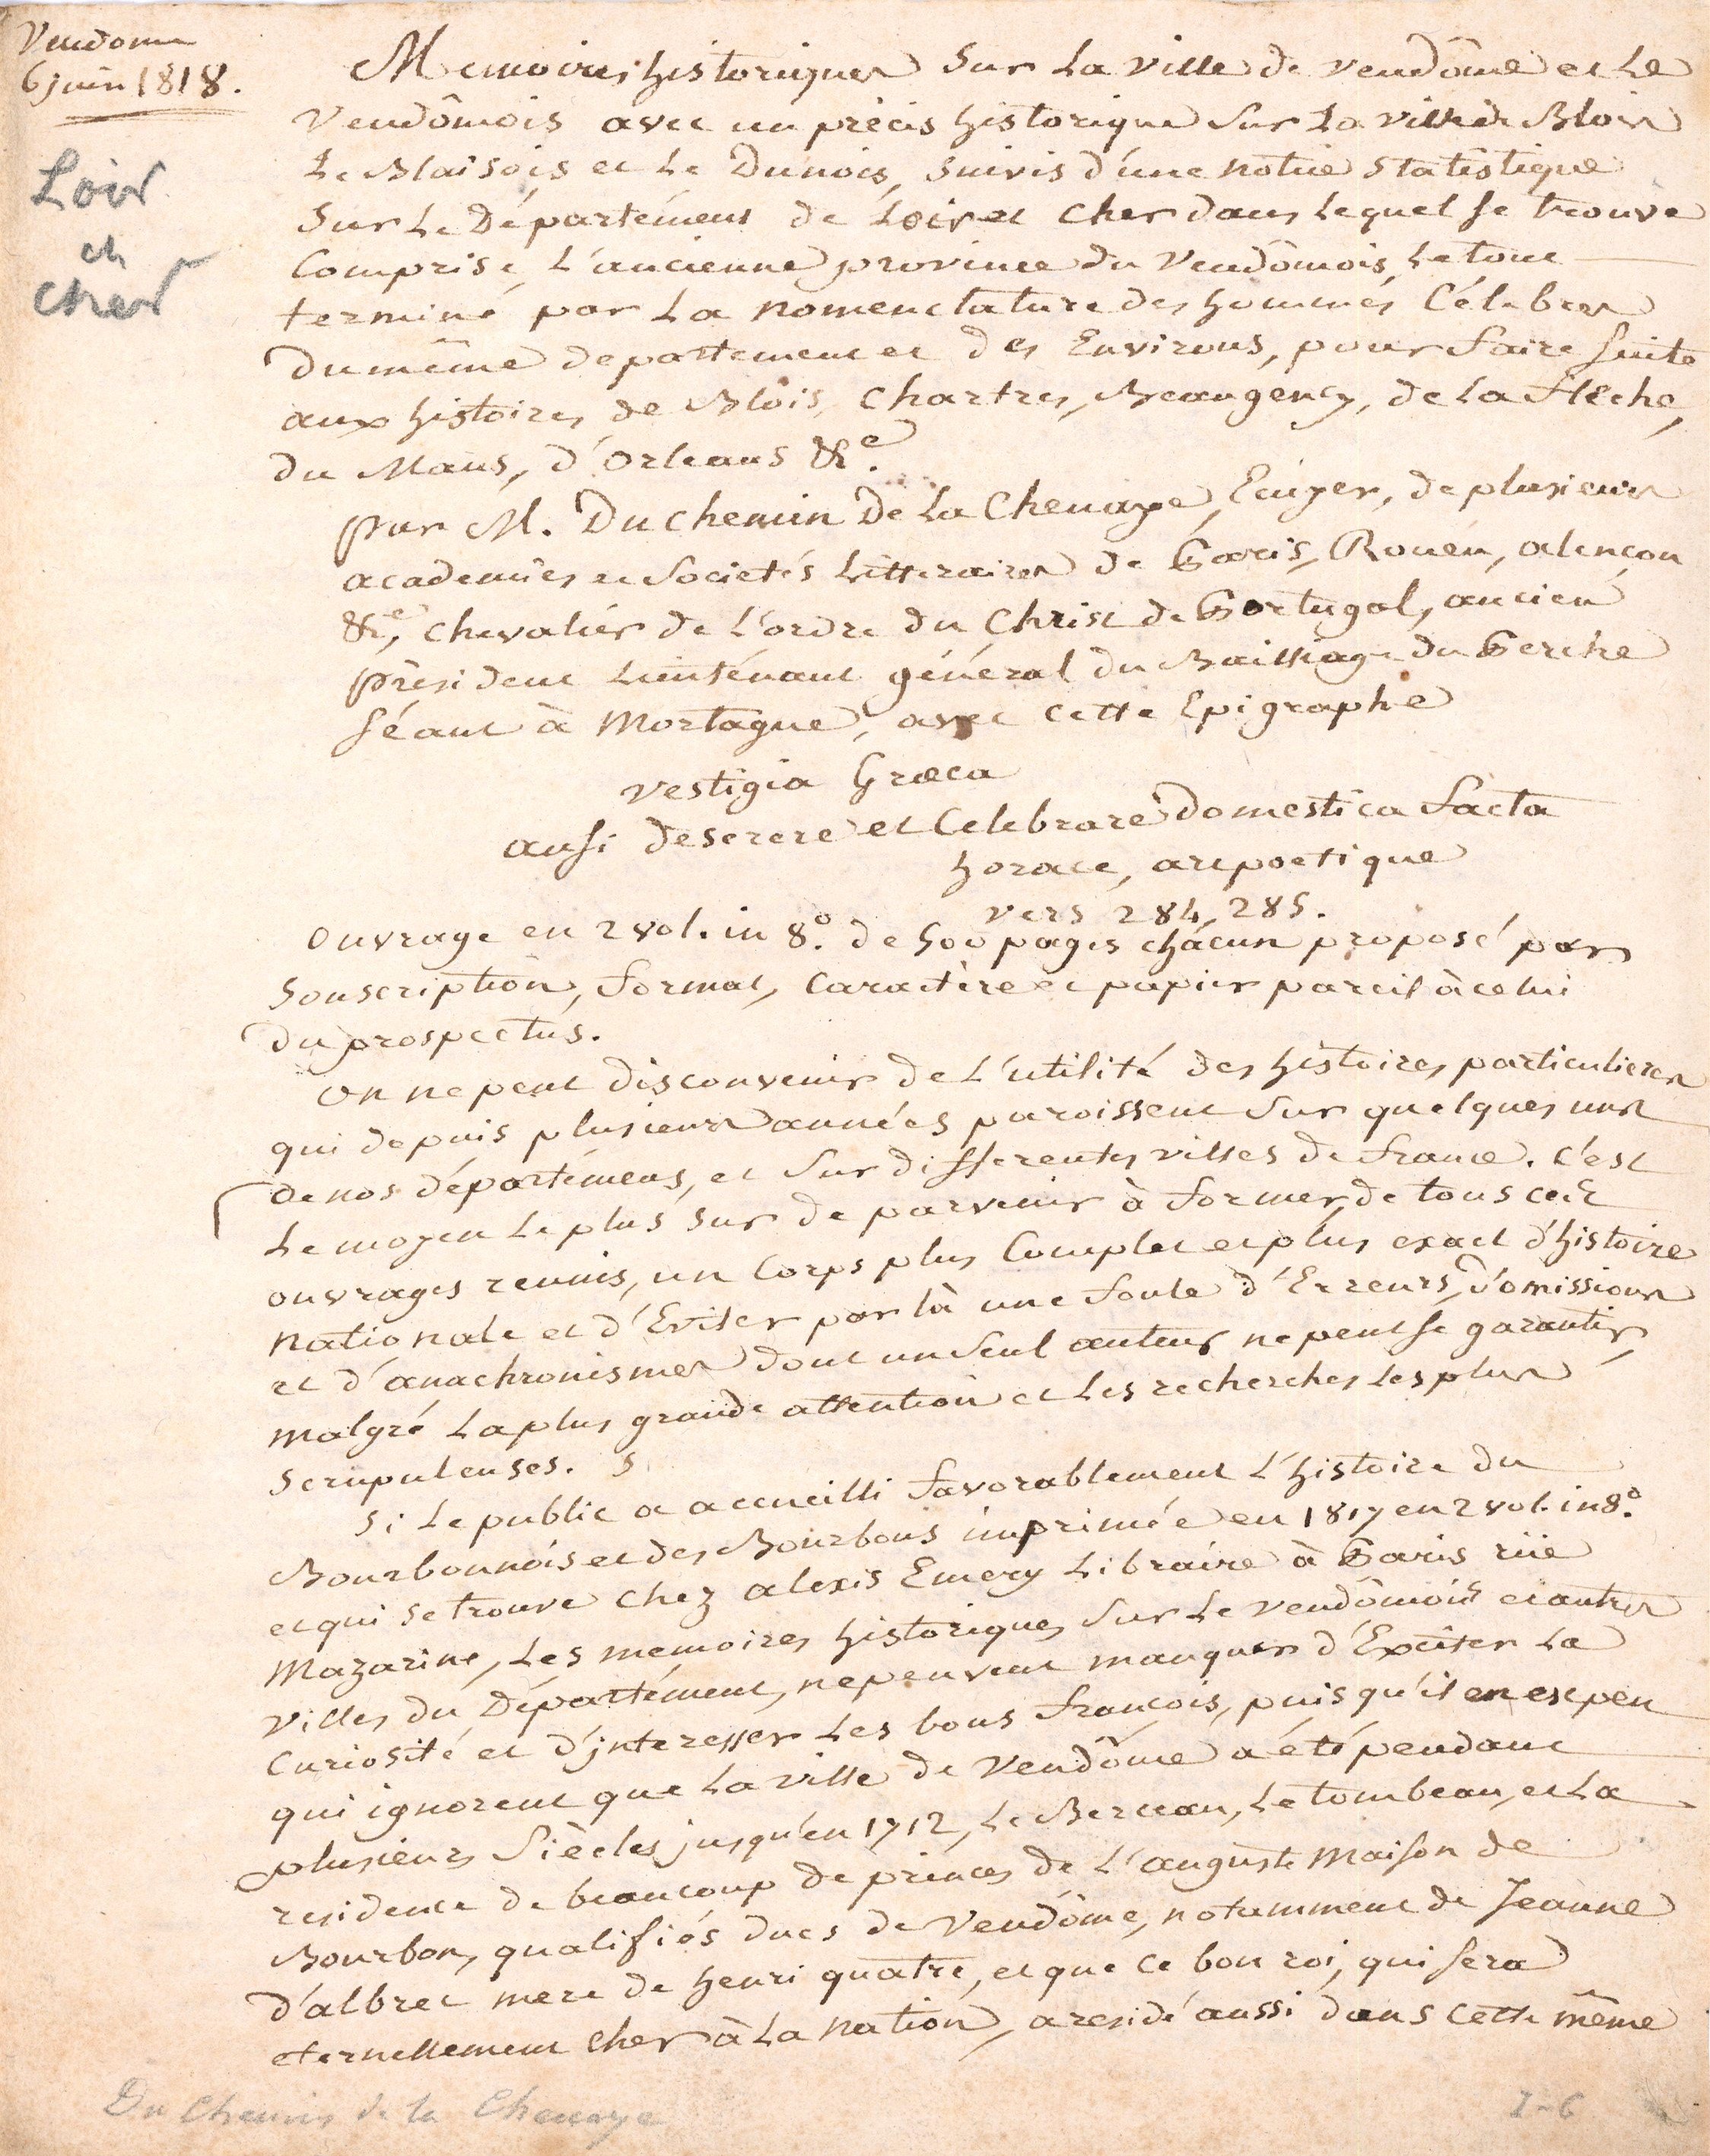 Vendome
6 juin 1818.
Loir
et
cher
Memoires historiques sur la ville de vendôme et le
Vendômois avec un précis historique sur la ville de Blois
le Blaisois et le Dunois, suivis d'une notice statistique
sur le Département de Loir et cher dans lequel se trouve
comprise, l'ancienne province du Vendômois, le tout
terminé par la nomenclature des hommes célebres
du même departement et des Environs, pour faire suite
aux histoires de Blois, Chartres, Beaugency, de la flêche,
du Mans, d'orleans &c.
par M. Du chemin De la Chenaye, Ecuyer, de plusieurs
academies et societés litteraires de Paris, Rouen, alençon
&c, chevalier de l'ordre du Christ de Portugal, ancien
président lieutenant général du Bailliage du Perche
séant à Mortagne, avec cette Epigraphe
vestigia Græca
ausi deserere et celebrare domestica facta
horace, art poetique
vers 284, 285.
ouvrage en 2 vol. in 8.º de 500 pages chacun proposé par
souscription, format, caractère et papier pareil à celui
du prospectus.
on ne peut disconvenir de l'utilité des histoires particulieres
qui depuis plusieurs années paroissent sur quelques uns
de nos départémens, et sur differentes villes de france. c'est
le moyen le plus sur de parvenir à former de tous ces
ouvrages reunis, un corps plus complet et plus exact d'histoire
nationale et d'Eviter par là une foule d'Erreurs, d'omissions
et d'anachronismes dont un seul auteur ne peut se garantir,
malgré la plus grande attention et les recherches les plus
scrupuleuses. §
si le public a accueilli favorablement l'histoire du
Bourbonnois et des Bourbons imprimée en 1817 en 2 vol. in 8.º
et qui se trouve chez alexis Emery libraire à Paris rüe
Mazarine, les memoires historiques sur le vendômois et autres
villes du Département, ne peuvent manquer d'Exciter la
curiosité et d'interesser les bons françois, puisqu'il en est peu
qui ignorent que la ville de Vendôme a été pendant
plusieurs siècles jusqu'en 1712, le Berceau, le tombeau, et la
residence de beaucoup de princes de l'auguste Maison de
Bourbon, qualifiés ducs de Vendôme, notamment de Jeanne
d'albret mere de henri quatre, et que ce bon roi, qui sera
eternellement cher à la nation, a residé aussi dans cette même
Du Chemin de la Chenaye
I-6